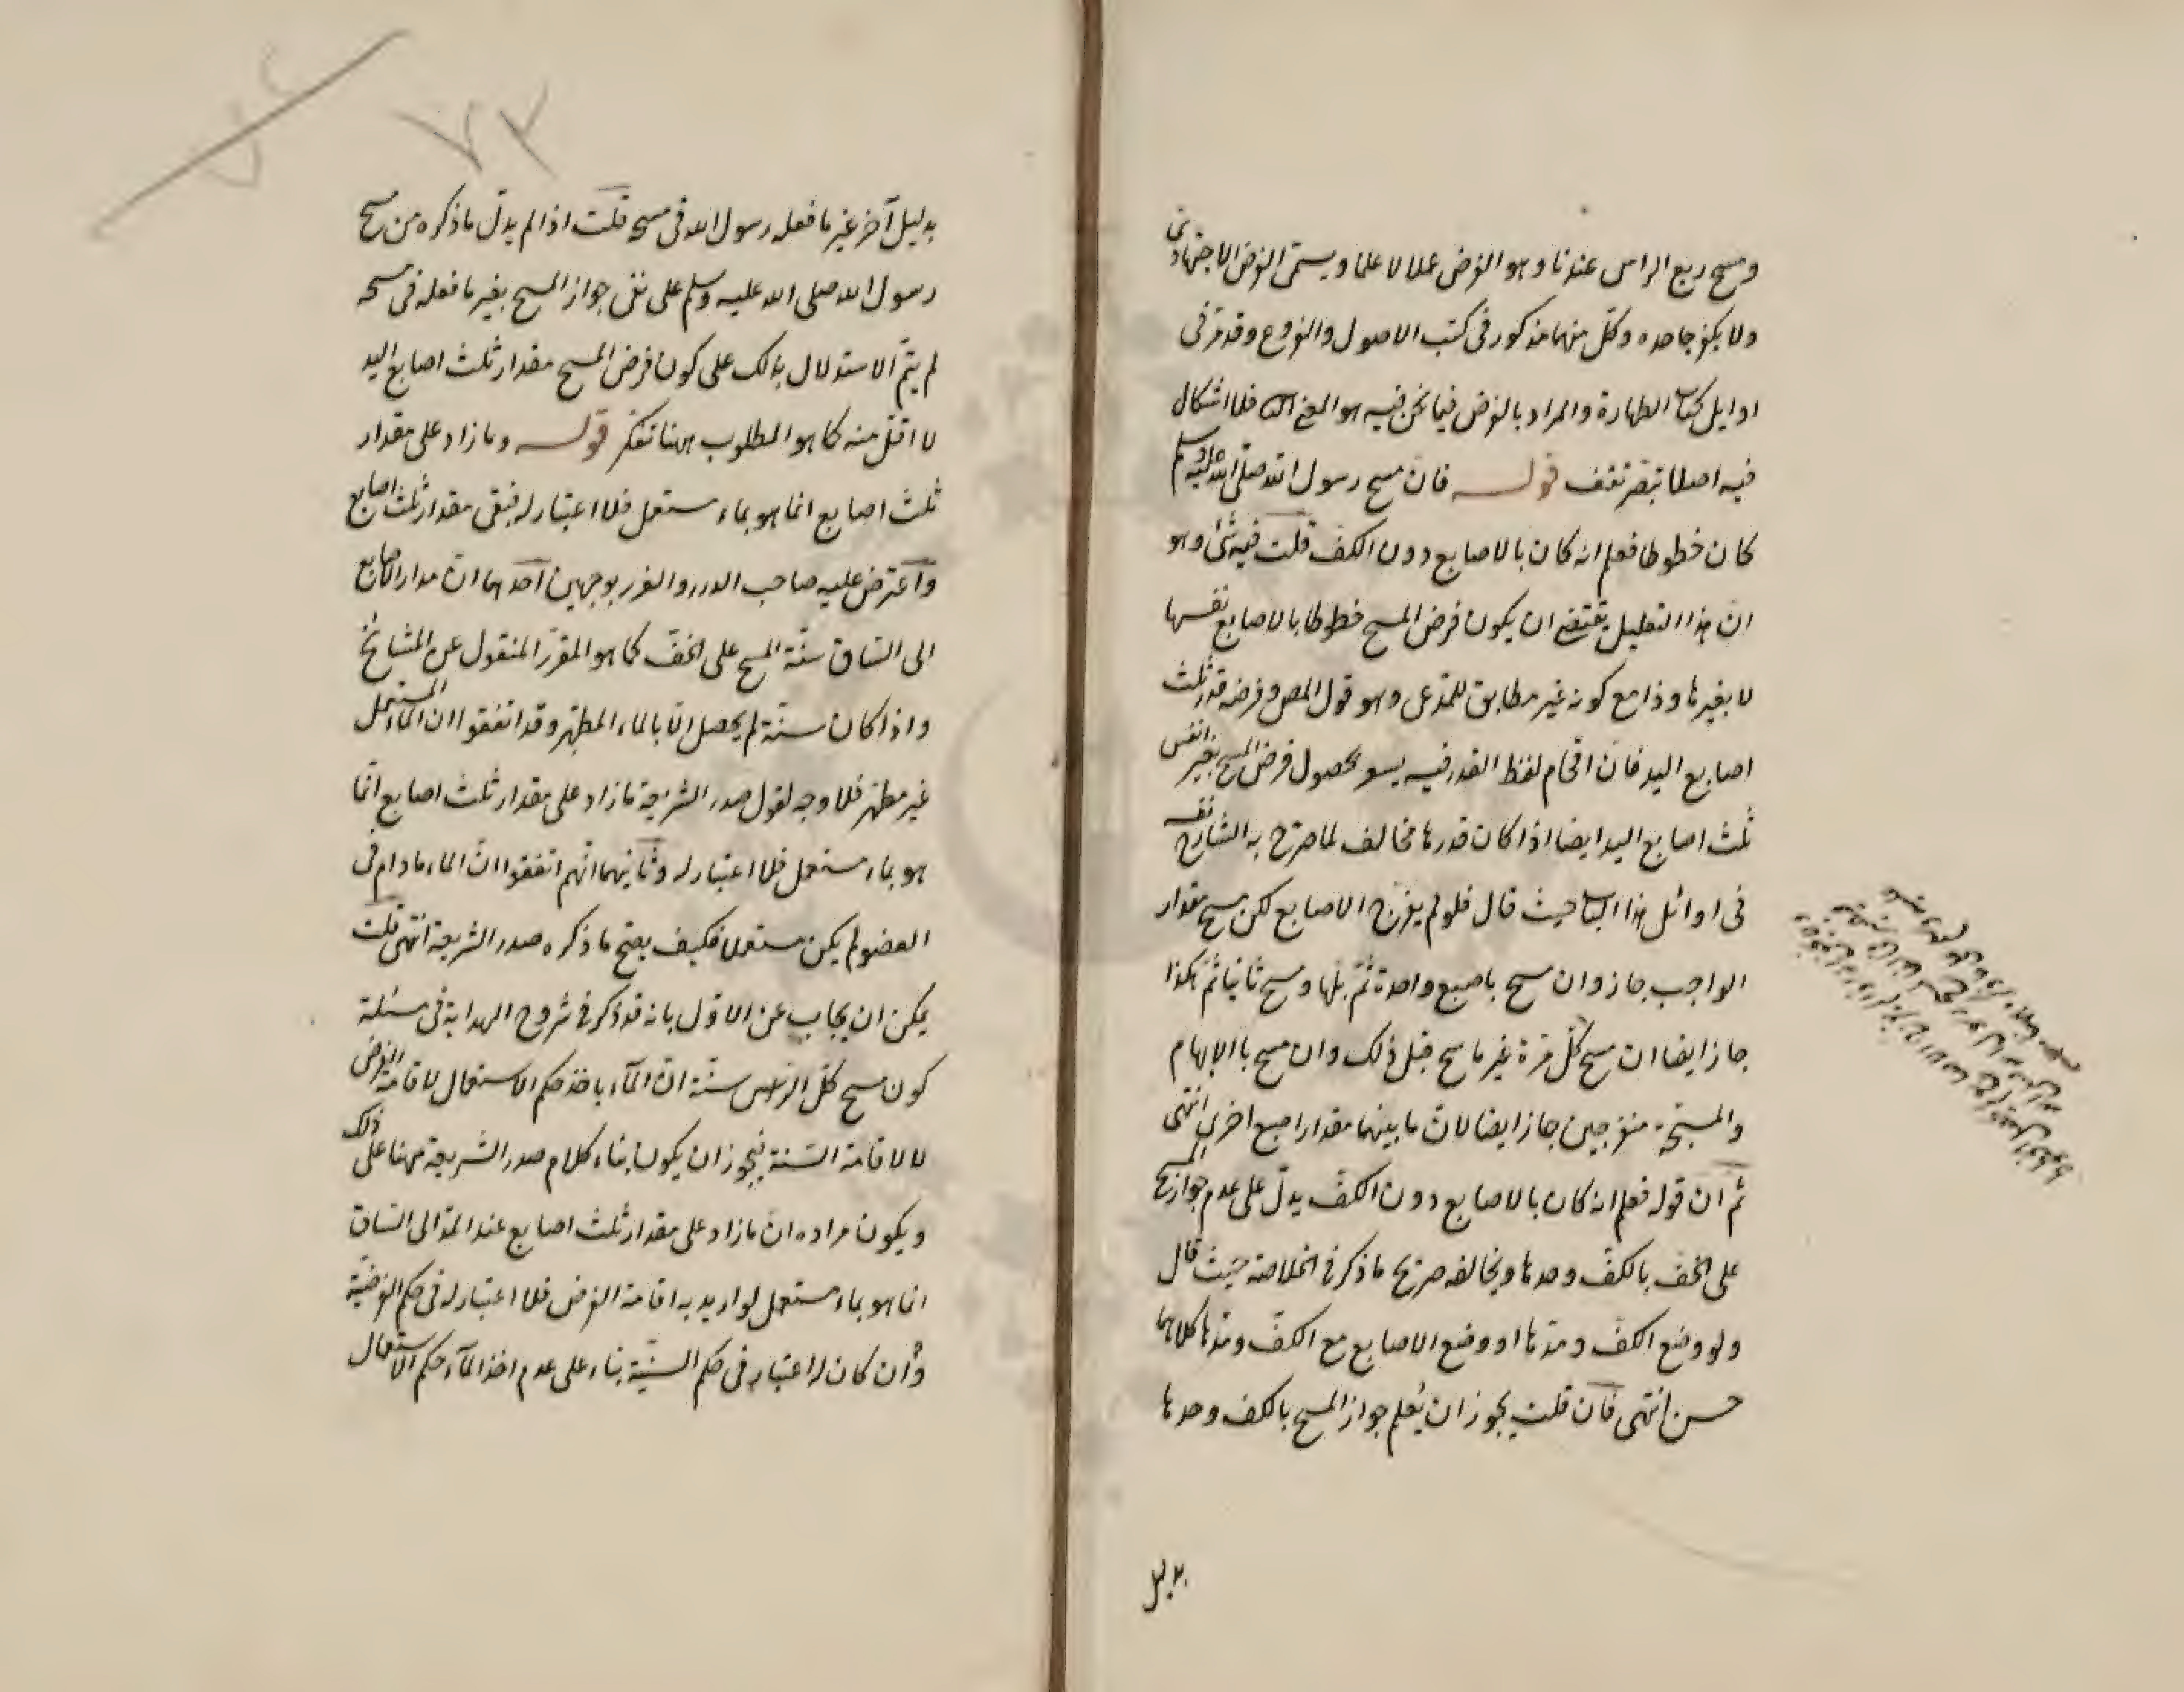 ومسح ربع الراس عندنا وهو الفرض عملا لا علما ويسمى الفرض الاجتهادى
ولا يكفر جاحده وكل منهما مذكور فى كتب الاصول والفروع وقد مر فى
اوايل كتاب الطهارة والمراد بالفرض فيما نحن فيه هو المعنى الثانى فلا اشكال
فيه اصلا تبصر تقف قوله فان مسح رسول الله صلى الله عليه وسلم
كان خطوطا فعلم انه كان بالاصابع دون الكف قلت فيه شئ وهو
ان هذا التعليل يقتضى ان يكون فرض المسح خطوطا بالاصابع نفسها
لا بغيرها وذا مع كونه غير مطابق للمدعى وهو قول المص وفرضه قدر ثلث
اصابع اليد فان اقحام لفظ القدر فيه يسو بحصول فرض المسح بغير انفس
ثلث اصابع اليد ايضا اذا كان قدرها مخالف لما صرح به الشارح نفسه
فى اوائل هذا الباب حيث قال فلو لم يفرج الاصابع لكن مسح مقدار
الواجب جاز وان مسح باصبع واحدة ثم بلها ومسح ثانيا ثم هكذا
جاز ايضا ان مسح كل مرة غير ما مسح قبل ذلك وان مسح بالابهام
والمسبحة منفرجين جاز ايضا لان ما بينهما مقدار اصبع اخرى انتهى
ثم ان قوله فعلم انه كان بالاصابع دون الكف يدل على عدم جواز المسح
على الخف بالكف وحدها ويخالفه صريح ما ذكر فى الخلاصة حيث قال
ولو وضع الكف ومدها او وضع الاصابع مع الكف ومدها كلاهما
حسن انتهى فان قلت يجوز ان يعلم جواز المسح بالكف وحدها
بدليل
بدليل آخر غير ما فعله رسول الله فى مسحه قلت اذا لم يدل ما ذكره من مسح
رسول الله صلى الله عليه وسلم على نفى جواز المسح بغير ما فعله فى مسحه
لم يتم الاستدلال بذلك على كون فرض المسح مقدار ثلث اصابع اليد
لا اقل منه كما هو المطلوب ههنا تفكر قوله وما زاد على مقدار
ثلث اصابع انما هو بماء مستعمل فلا اعتبار له فبقى مقدار ثلث اصابع
واعترض عليه صاحب الدرر والغرر بوجهين احدهما ان مد الاصابع
الى الساق سنة المسح على الخف كما هو المقرر المنقول عن المشايخ
واذا كان سنة لم يحصل الا بالماء المطهر وقد اتفقوا ان الماء المستعمل
غير مطهر فلا وجه لقول صدر الشريعة ما زاد على مقدار ثلث اصابع انما
هو بماء مستعمل فلا اعتبار له وثانيهما انهم اتفقوا ان الماء ما دام فى
العضو لم يكن مستعملا فكيف يصح ما ذكره صدر الشريعة انتهى قلت
يمكن ان يجاب عن الاول بانه قد ذكر فى شروح الهداية فى مسئلة
كون مسح كل الراس سنة ان الماء ياخذ حكم الاستعمال لاقامة الفرض
لا لاقامة السنة فيجوز ان يكون بناء كلام صدر الشريعة ههنا على ذلك
ويكون مراده ان ما زاد على مقدار ثلث اصابع عند المد الى الساق
انما هو بماء مستعمل لو اريد به اقامة الفرض فلا اعتبار له فى حكم الفرضية
وان كان له اعتبار فى حكم السنية بناء على عدم اخذ الماء حكم الاستعمال
٧٣